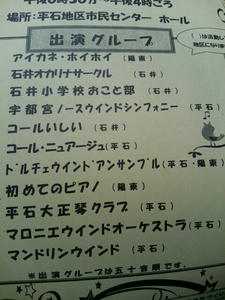 場所:平石地区市民センター ホール
出演グループ
( )は活動し
地区になりま
アイカネ・ホイホイ (陽東)
石井オカリナサークル (石井)
石井小学校おこと部 (石井)
宇都宮ノースウインドシンフォニー (平石)
コールいしい (石井)
コール・ニュアージュ (平石)
ドルチェウインドアンサンブル(平石・陽東)
初めてのピアノ (陽東)
平石大正琴クラブ (平石)
マロニエウインドオーケストラ(平石)
マンドリンウインド (平石)
※出演グループは五十音順です。